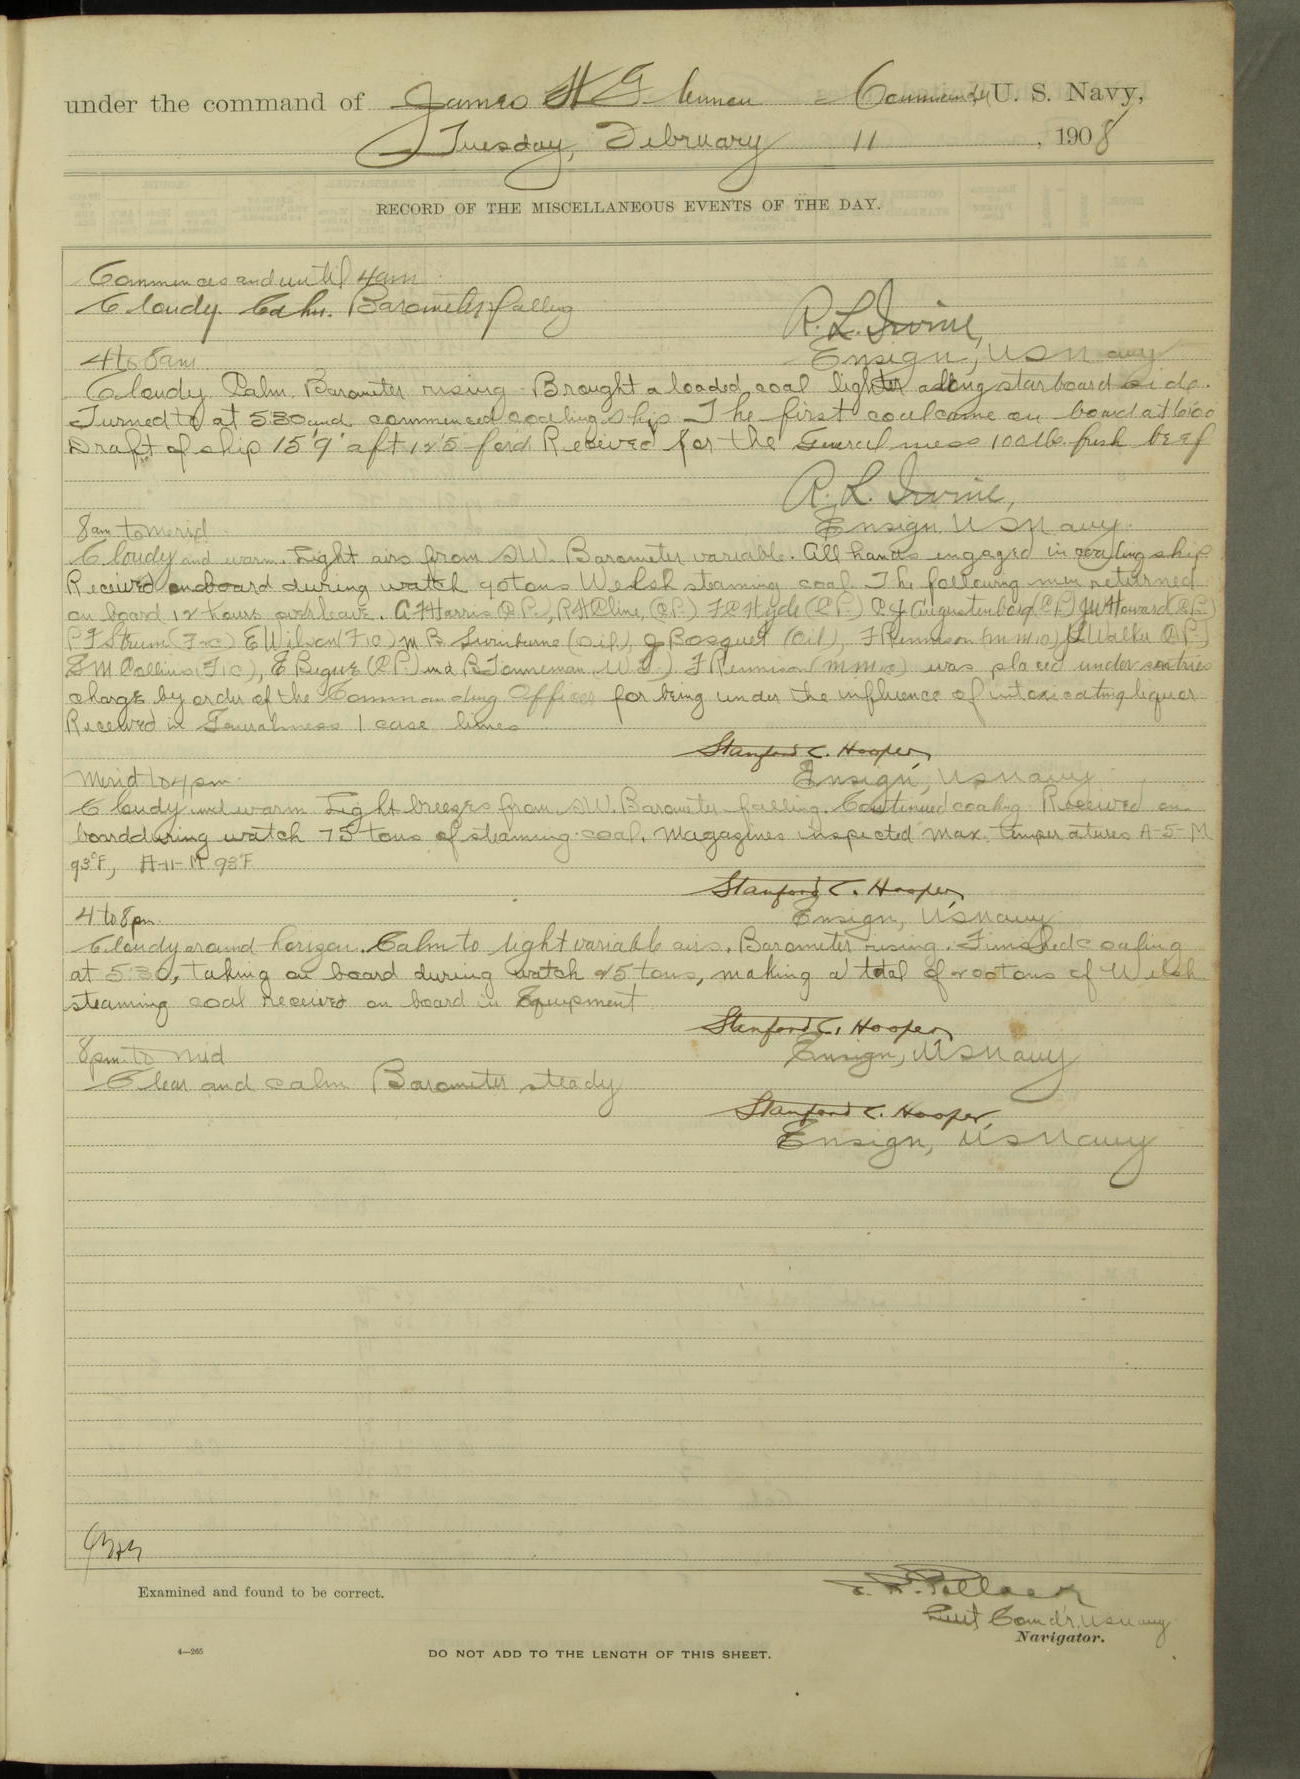 under the command of James H Glennon Commander, U. S. Navy,
Tuesday, February 11, 1908
RECORD OF THE MISCELLANEOUS EVENTS OF THE DAY.
Commences and until 4am
Cloudy. Calm. Barometer falling
R. L. Irvine,
Ensign, U S Navy
4 to 8am
Cloudy Calm. Barometer rising Brought a loaded coal lighter along starboard side.
Turned to at 530 and commenced coaling ship The first coal came on board at 600
Draft of ship 15'9" aft 12'5 ford Received for the General mess 100 lb. fresh beef
R. L. Irvine,
Ensign U S Navy.
8am to merid
Cloudy and warm. Light airs from SW. Barometer variable. All hands engaged in coaling ship
Received on board during watch 90 tons Welsh staming coal. The following men returned
on board 12 hours overleave. A F Harris (C.P.), R H Cline, (C.P.) F C Hyde (C.P.) C J Augustenborg (C.P.) J M Howard (C.P.)
P F Strum (F2C) E Wilson (F1C) M B Swinburne (Oil), J Bosquet (Oil), F Rennison (M M 1c) J Walker (C.P.)
E M Collins (F1c), E Begue (C.P.) and B Tonneman, F Rennison (M M 1c) was placed under sentries
charge by order of the Commanding Officer for being under the influence of intoxicating liquor
Received in General mess 1 case limes
Stanford C. Hooper,
Ensign, U S Navy
Merid to 4 pm.
Cloudy and warm Light breezes from SW. Barometer falling. Continued coaling Received on
board during watch 75 tons of steaming coal. Magazines inspected max. temperatures A-5-M
93°F, A-11-M 93°F
Stanford C. Hooper,
Ensign, U S Navy
4 to 8pm.
Cloudy around horizon. Calm to light variable airs. Barometer rising. Finished coaling
at 5:30, taking on board during watch 25 tons, making a total of 200 tons of Welsh
steaming coal received on board in Equipment
Stanford C. Hooper,
Ensign, U S Navy
8pm to mid
Clear and calm Barometer steady
Stanford C. Hooper,
Ensign, U S Navy
Examined and found to be correct.
E. R. Pollock
Lieut Comd'r, U S Navy
Navigator.
4—265
DO NOT ADD TO THE LENGTH OF THIS SHEET.